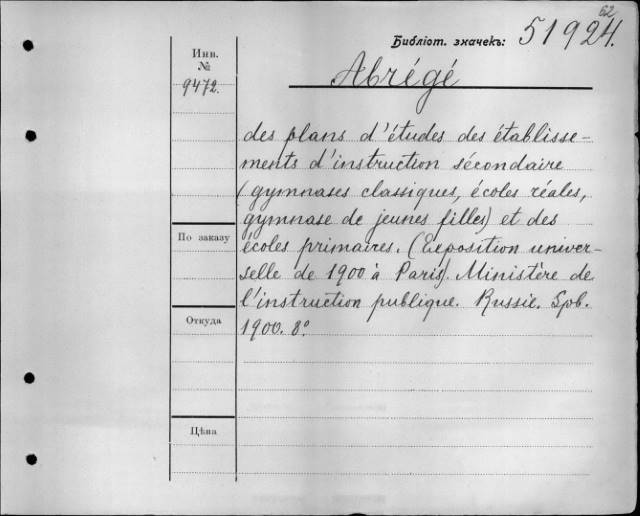 62
Библіот. значекъ: 51924.
Инв.
№
9472.
Abrégé
des plans d'études des établisse-
ments d'instruction sécondaire
(gymnases classiques, écoles réales,
gymnase de jeunes filles) et des
écoles primaires. (Exposition univer-
selle de 1900 à Paris). Ministère de
l'instruction publique. Russie. Spb.
1900. 8°
По заказу
Откуда
Цѣна